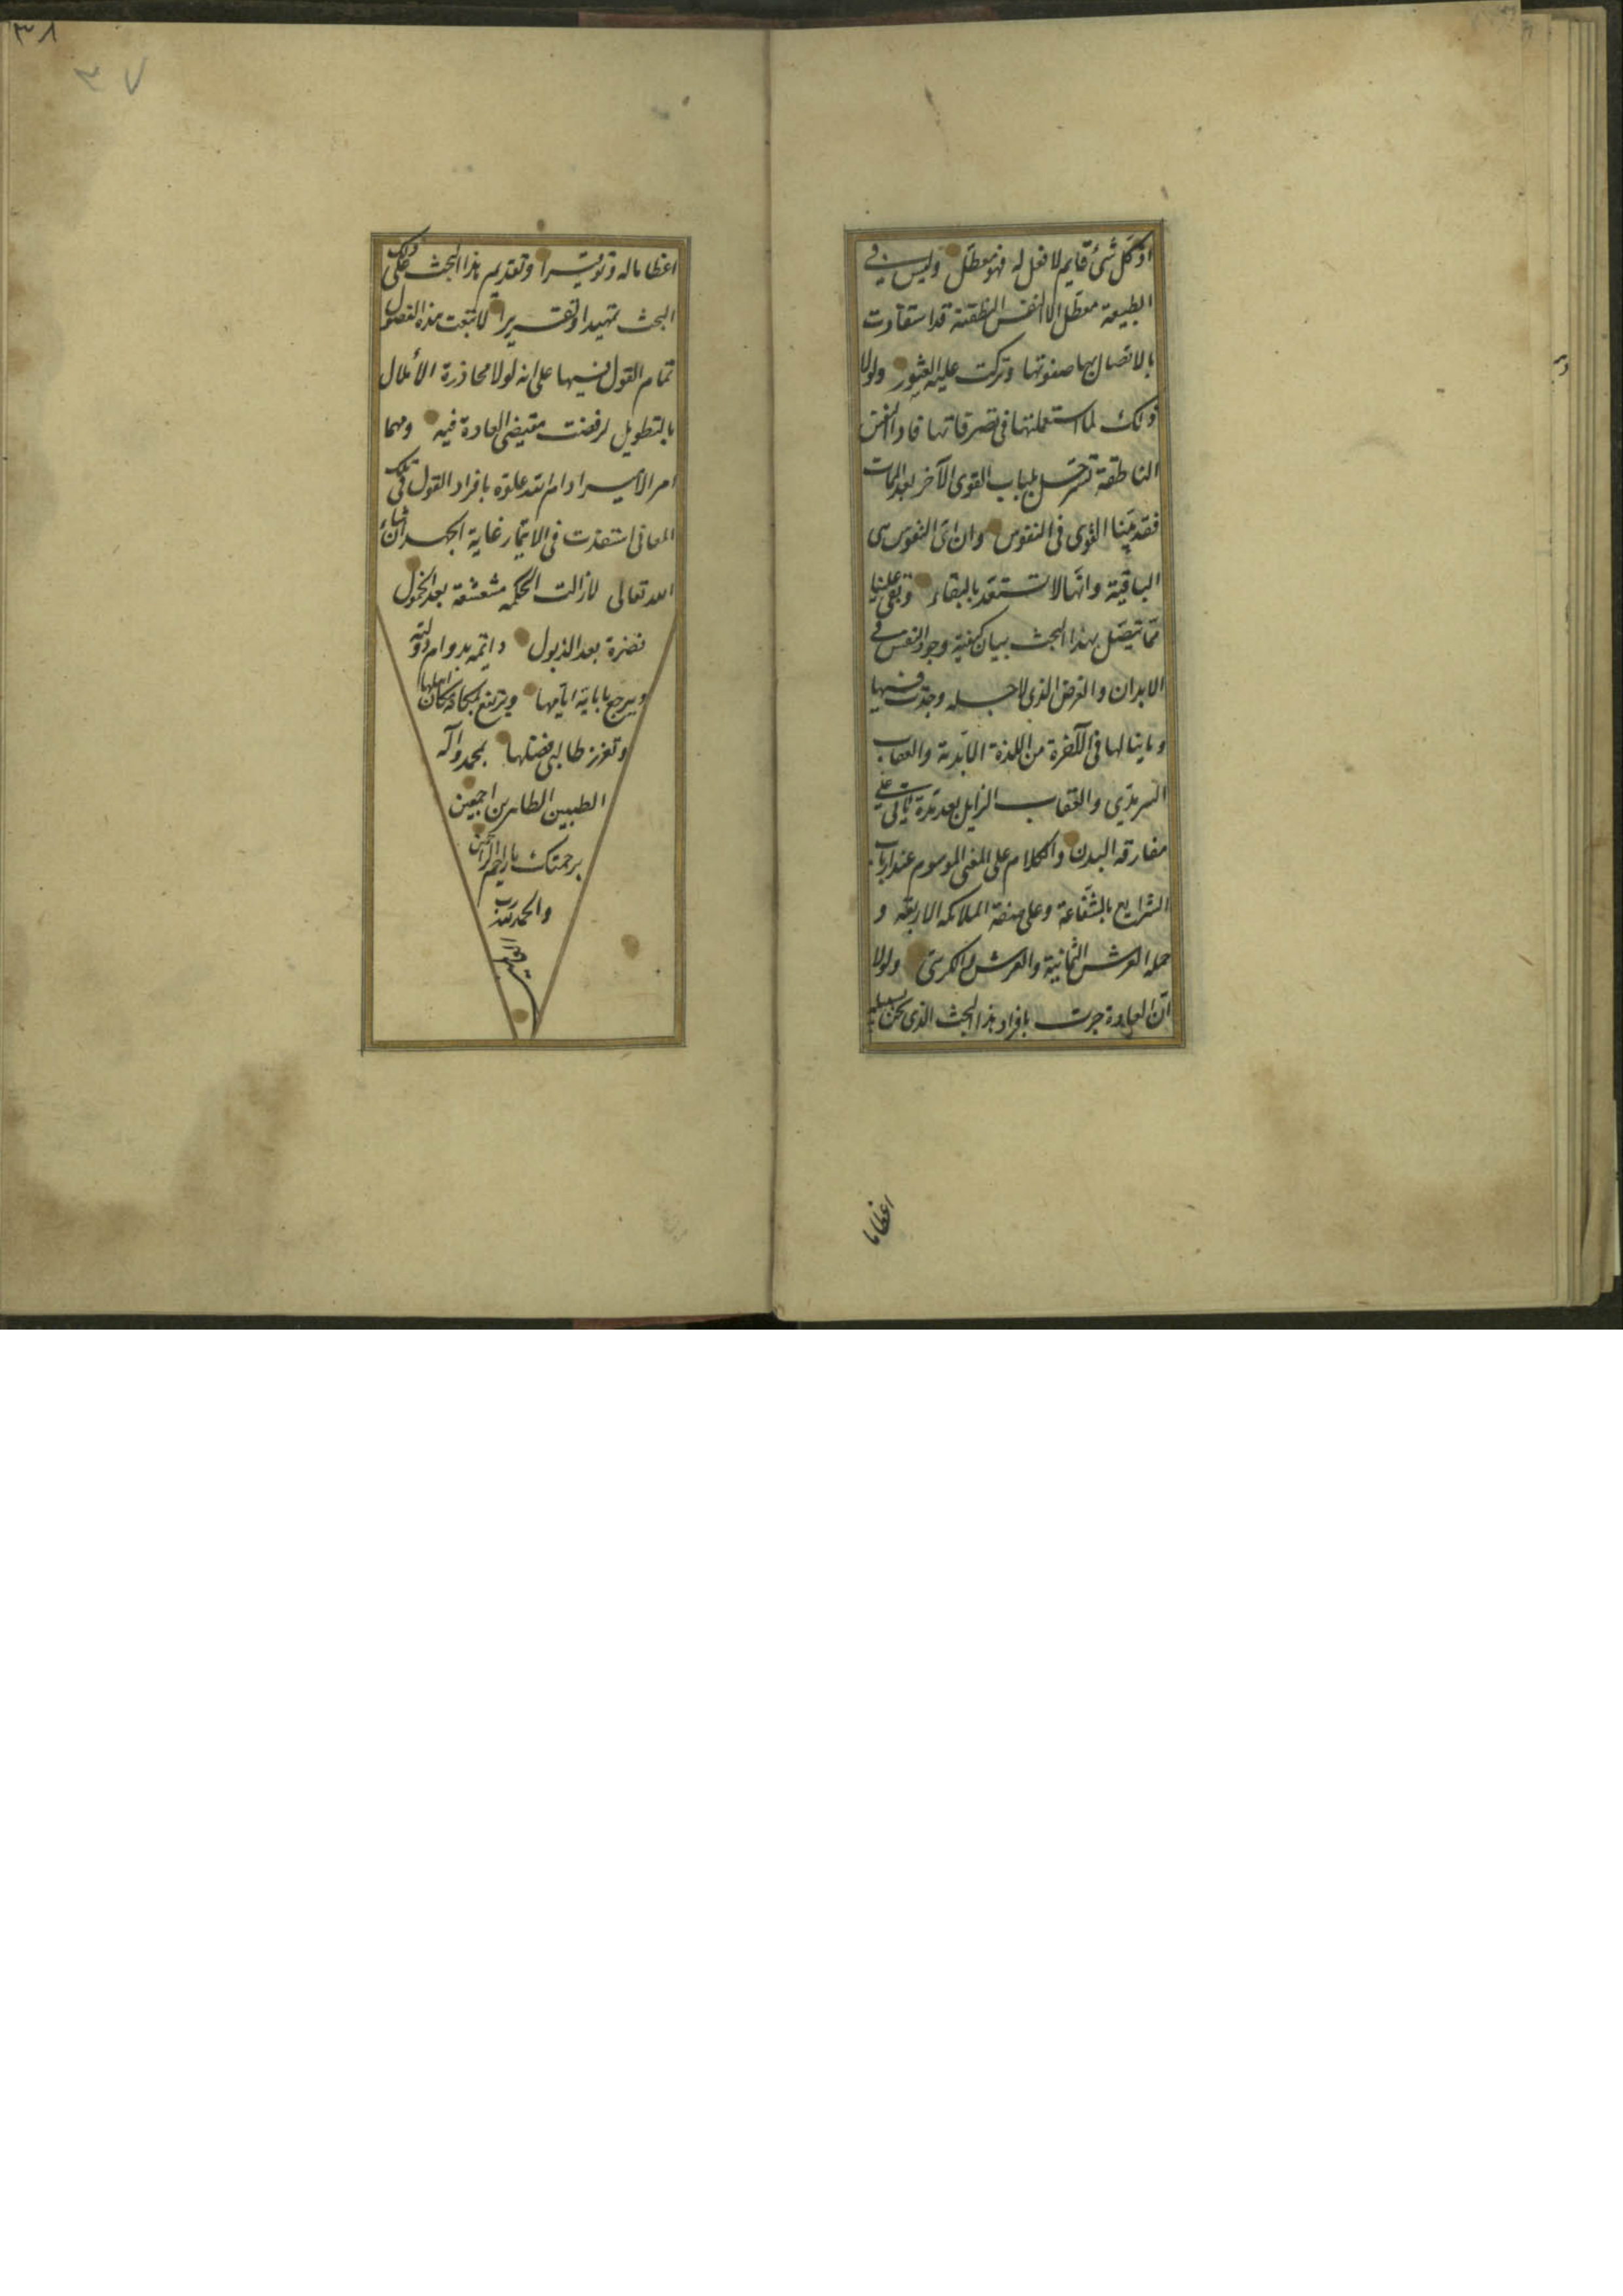 اذ كل شئ قايم لا فعل له فهو معطل وليس في
الطبيعة معطل الا ان النفس النطقية قد استفادت
بالاتصال بها صفوتها وتركت عليه القشور ولولا
ذلك لما استعملتها في تصرفاتها فاذا النفس
الناطقة تترحل بلباب القوى الآخر بعد الممات
فقد بينا القوى في النفوس وان اى النفوس هى
الباقية وانها لا تستعد بالبقاء وبقى علينا
مما يتصل بهذا البحث بيان كيفية وجود النفس في
الابدان والغرض الذى لاجله وجدت فيها
وما ينالها في الآخرة من اللذة الابدية والعقاب
السرمدي والعقاب الزايل بعد مدة يأتى على
مفارقة البدن والكلام على المعنى الموسوم عند ارباب
الشرايع بالشفاعة وعلى صفة الملائكة الاربعة و
حملة العرش الثمانية والعرش والكرسى ولولا
ان العادة جرت بافراد هذا البحث الذى نحن بسبيله
اعظاما
اعظاما له وتوقيرا وتقديم هذا البحث على ذلك
البحث تمهيدا وتقريرا لاتبعت هذه الفصول
تمام القول فيها على انه لولا محاذرة الأملال
بالتطويل لرفضت مقتضى العادة فيه ومهما
امر الأمير ادام الله علوه بافراد القول في تلك
المعانى استنفذت في الايتمار غاية الجهد ان شاء
الله تعالى لا زالت الحكمه منتعشة بعد الخمول
نضرة بعد الذبول دائمه بدوام دولته
ويرجع باياته ايامها ويرتفع بمكانه مكان اهلها
وتعزز طالبى فضلها بمحمد وآله
الطيبين الطاهرين اجمعين
برحمتك يا ارحم الراحمين
والحمد لله رب
٣٨
٣٧